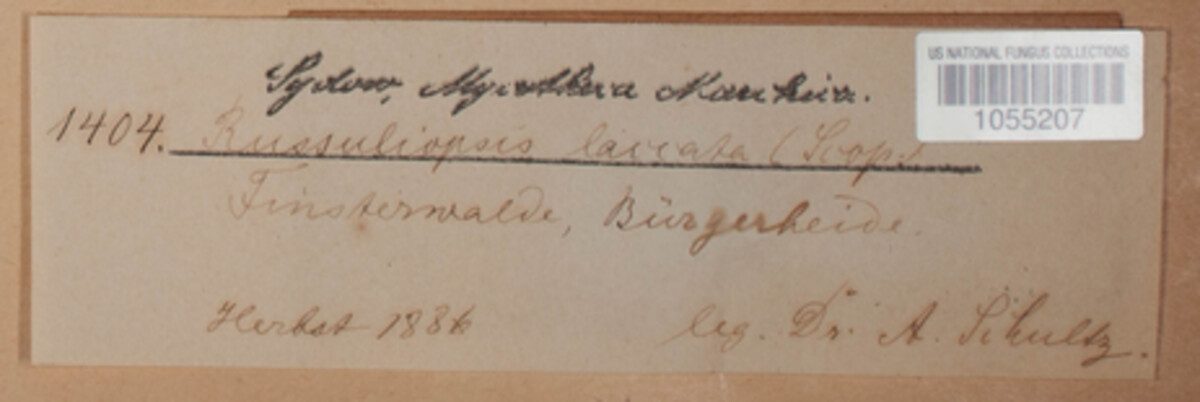 US NATIONAL FUNGUS COLLECTIONS
1055207
Sydow, Mycotheca Marchica.
1404. Russuliopsis laccata (Scop.)
Finsterwalde, Bürgerheide.
Herbst 1886 leg. Dr. A. Schultz.